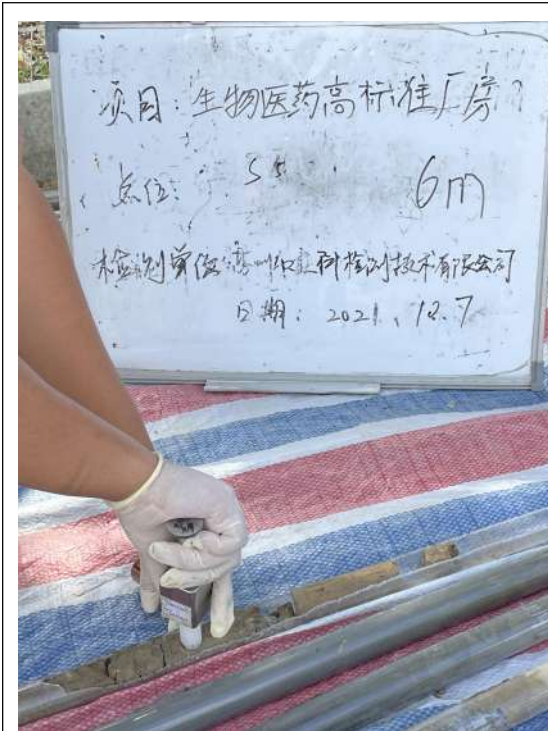 项目：生物医药高标准厂房
点位： S5 6m
检测单位：州科检测技术有限公司
日期：2021.12.7